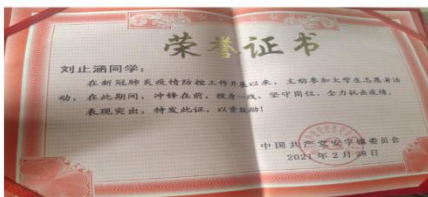 荣誉证书
刘止涵同学：
在新冠肺炎疫情防控工作开展以来，主动参加大学生志愿者活
动，在此期间，冲锋在前，投身一线，坚守岗位，全力抗击疫情，
表现突出，特发此证，以资鼓励！
中国共产党安宁镇委员会
2021年2月28日